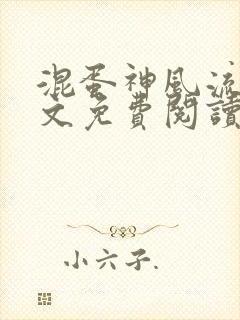 混蛋神風流
文免費閱讀
小六子.